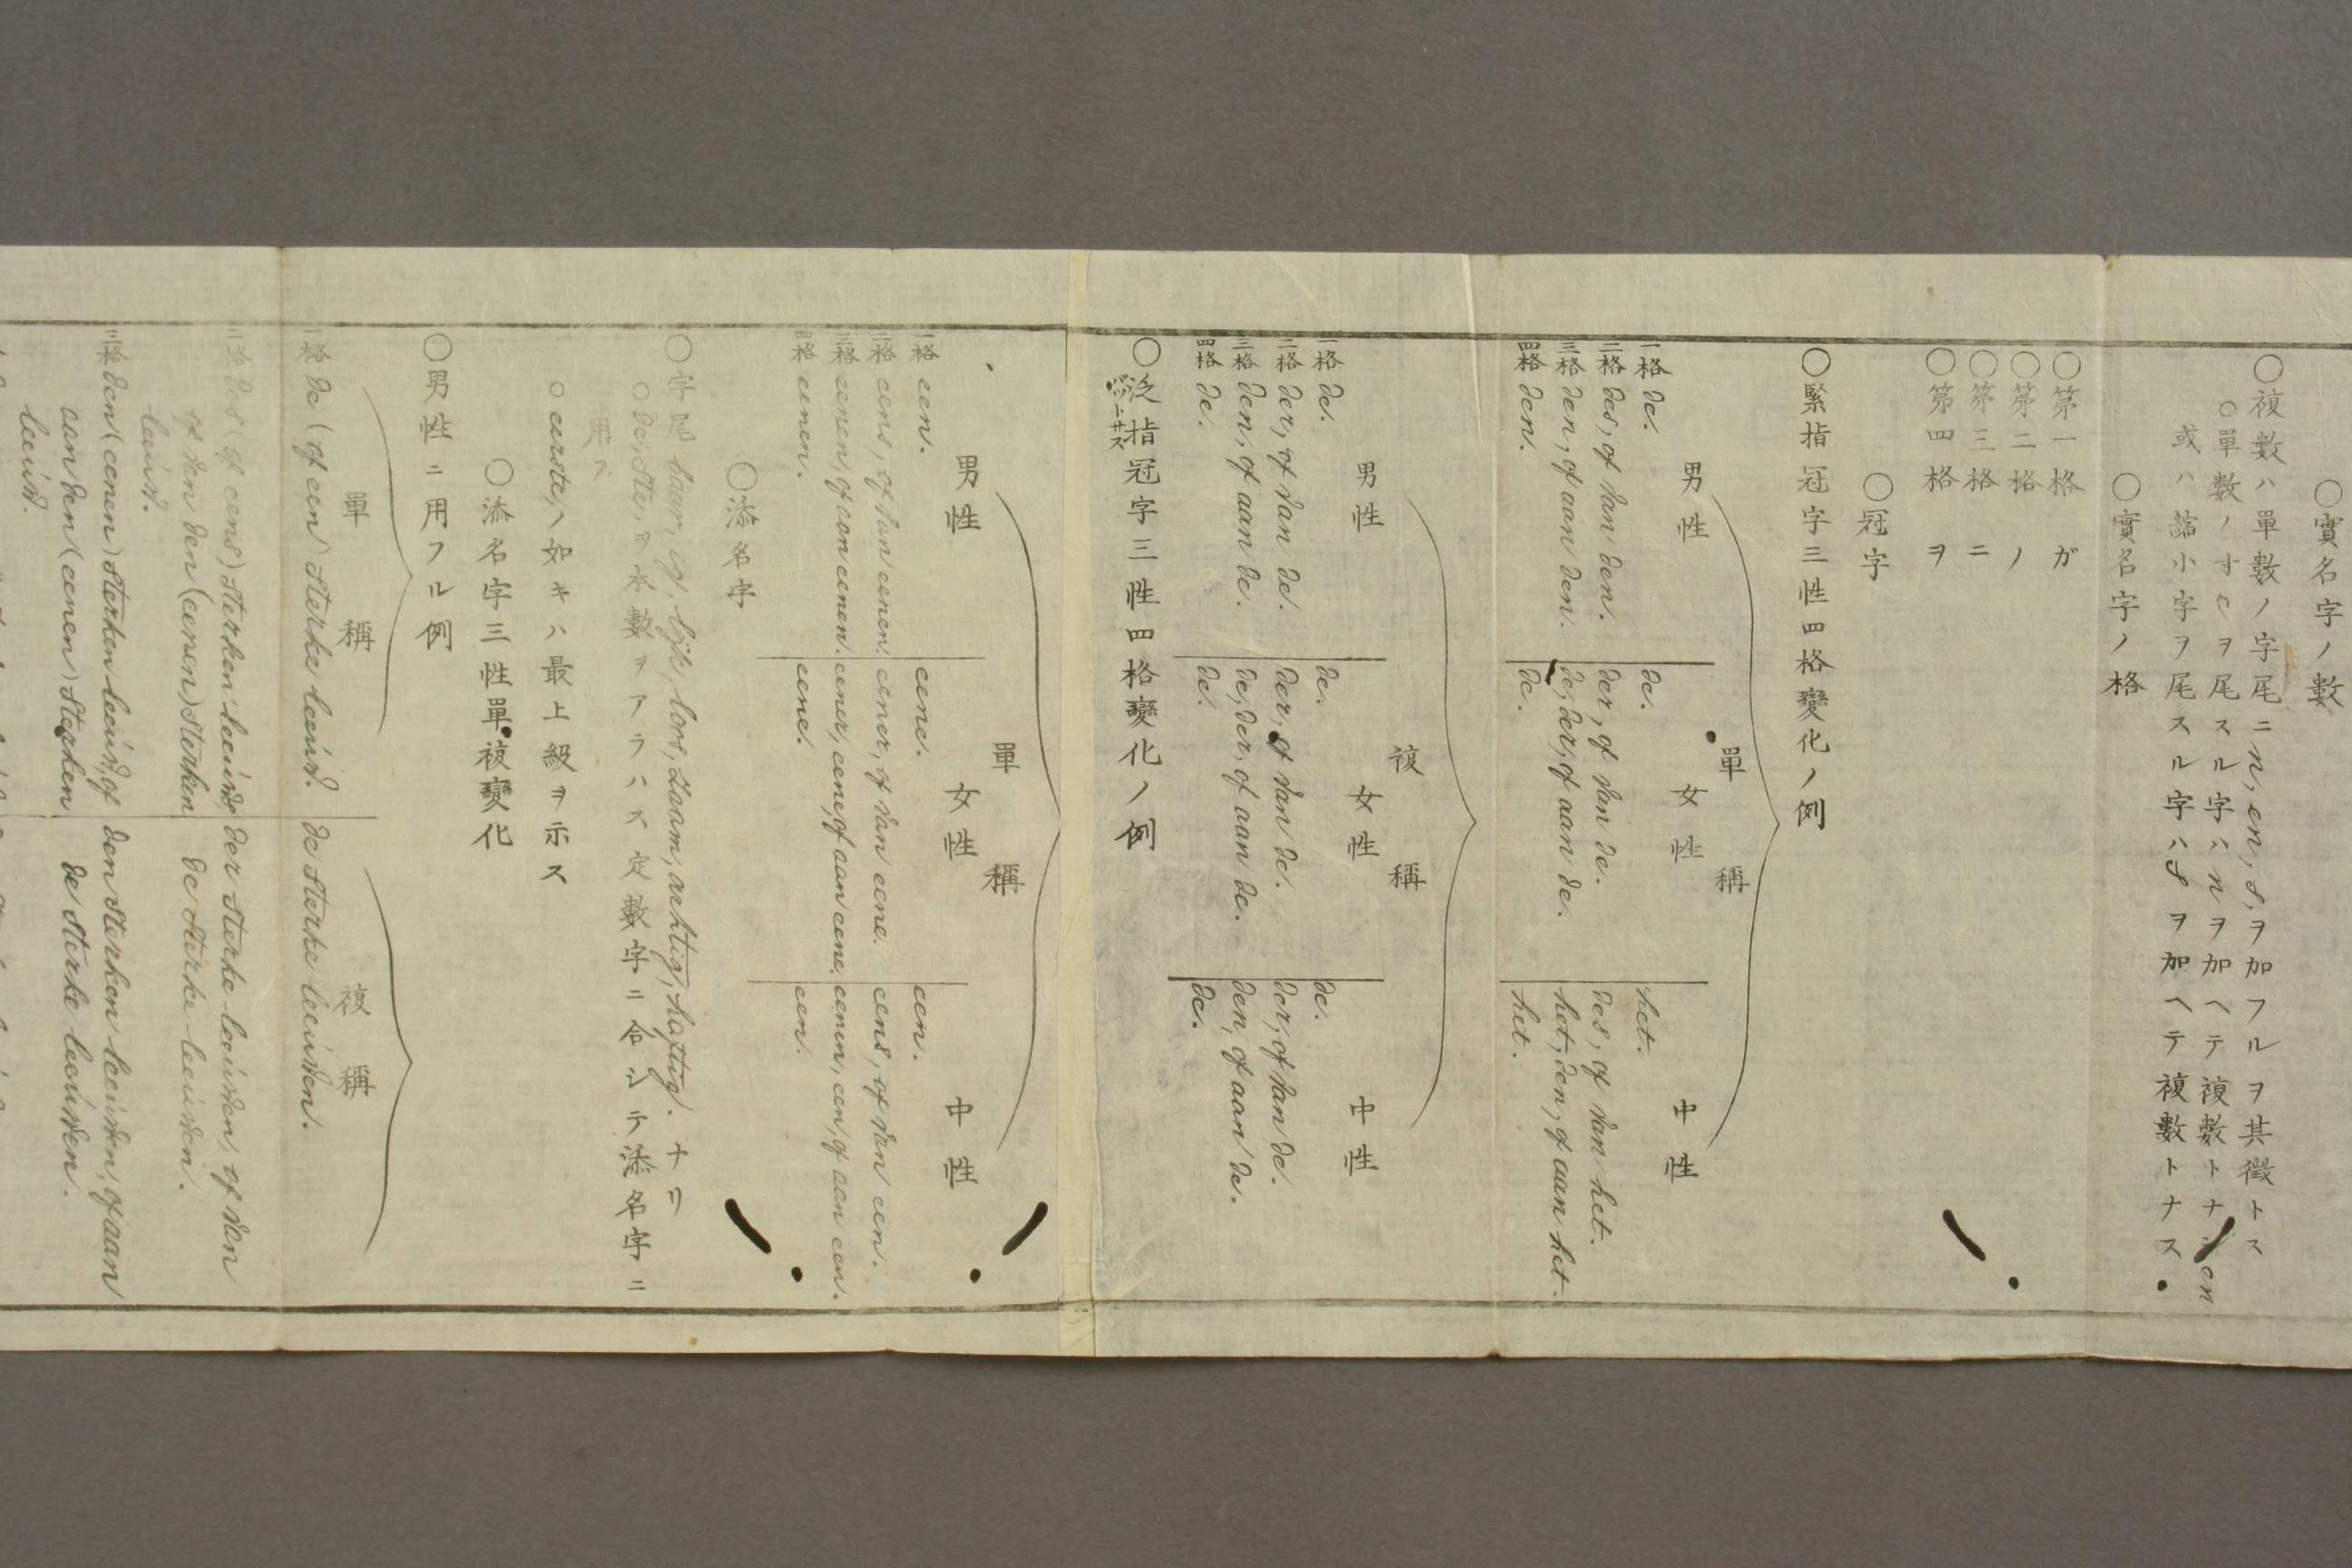 ○實名字ノ數
○複數ハ單數ノ字尾ニn, en, s, ヲ加フルヲ其徴トス
○單數ノすeヲ尾スル字ハnヲ加ヘテ複數トナシen
或ハ縮小字ヲ尾スル字ハsヲ加ヘテ複數トナス
○實名字ノ格
○第一格 ガ
○第二格 ノ
○第三格 ニ
○第四格 ヲ
○冠字
○緊指冠字三性四格變化ノ例
單稱
男性 女性 中性
一格 de. de. het.
二格 des, of van den. der, of van de. des, of van het.
三格 den, of aan den. de, der, of aan de. het, den, of aan het.
四格 den. de. het.
複稱
男性 女性 中性
一格 de. de. de.
二格 der, of van de. der, of van de. der, of van de.
三格 den, of aan de. de, der, of aan de. den, of aan de.
四格 de. de. de.
○泛指冠字三性四格變化ノ例
單稱
男性 女性 中性
一格 een. eene. een.
二格 eens, of van eenen. eener, of van eene. eens, of van een.
三格 eenen, of aan eenen. eener, eene, of aan eene. eenen, een, of aan een.
四格 eenen. eene. een.
○添名字
○字尾 baar, ig, lijk, loos, zaam, achtig, haftig. ナリ
○de, ste, ヲ本數ヲアラハス定數字ニ合シテ添名字ニ
用フ
○eerste, ノ如キハ最上級ヲ示ス
○添名字三性單複變化
○男性ニ用フル例
單稱 複稱
一格 de (of een) sterke leeuw. de sterke leeuwen.
二格 des (of eens) sterken leeuws der sterke leeuwen, of van
of van den (eenen) sterken de sterke leeuwen.
leeuw.
三格 den (eenen) sterken leeuw, of den sterken leeuwen, of aan
aan den (eenen) sterken de sterke leeuwen.
leeuw.